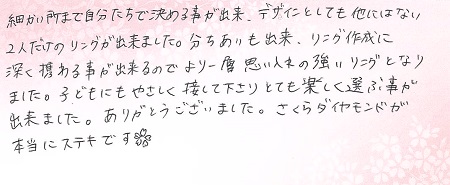 細かい所まで自分たちで決める事が出来、デザインとしても他にはない
2人だけのリングが出来ました。分ちあいも出来、リング作成に
深く携わる事が出来るのでより一層思い入れの強いリングとなり
ました。子どもにもやさしく接して下さりとても楽しく選ぶ事が
出来ました。ありがとうございました。さくらダイヤモンドが
本当にステキです